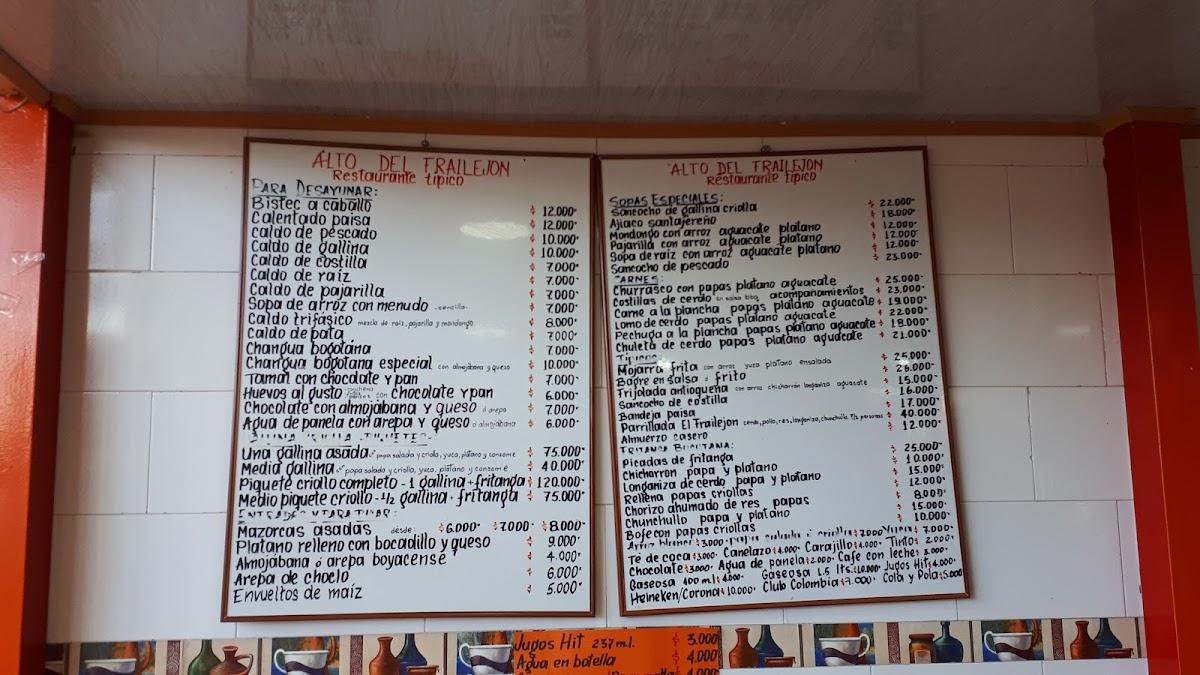 ALTO DEL FRAILEJON
Restaurante típico
PARA DESAYUNAR:
Bistec a caballo $ 12.000
Calentado paisa $ 12.000
Caldo de pescado $ 10.000
Caldo de gallina $ 10.000
Caldo de costilla $ 7.000
Caldo de raíz $ 7.000
Caldo de pajarilla $ 7.000
Sopa de arroz con menudo -sencilla- $ 7.000
Caldo trifásico mezcla de raiz, pajarilla y mondongo $ 8.000
Caldo de pata $ 7.000
Changua bogotana $ 7.000
Changua bogotana especial con almojabana y queso $ 10.000
Tamal con chocolate y pan $ 7.000
Huevos al gusto con chocolate y pan $ 6.000
Chocolate con almojabana y queso ó arepa $ 7.000
Agua de panela con arepa y queso ó almojabana $ 6.000
Una gallina asada papa salada y criolla, yuca, plátano y consome $ 75.000
Media gallina papa salada y criolla, yuca, plátano y consome $ 40.000
Piquete criollo completo - 1 gallina + fritanga $ 120.000
Medio piquete criollo - 1/2 gallina + fritanga $ 75.000
Mazorcas asadas desde: $6.000 $7.000 $8.000
Platano relleno con bocadillo y queso $ 9.000
Almojábana ó arepa boyacense $ 4.000
Arepa de choclo $ 6.000
Envueltos de maíz $ 5.000
ALTO DEL FRAILEJON
Restaurante típico
SOPAS ESPECIALES:
Sancocho de gallina criolla $ 22.000
Ajiaco santafereño $ 18.000
Mondongo con arroz aguacate platano $ 12.000
Pajarilla con arroz aguacate platano $ 12.000
Sopa de raíz con arroz aguacate platano $ 12.000
Sancocho de pescado $ 23.000
CARNES:
Churrasco con papas platano aguacate $ 25.000
Costillas de cerdo en salsa bbq acompañamientos $ 23.000
Carne a la plancha papas platano aguacate $ 19.000
Lomo de cerdo papas platano aguacate $ 22.000
Pechuga a la plancha papas platano aguacate $ 19.000
Chuleta de cerdo papas platano aguacate $ 21.000
Típicos
Mojarra frita con arroz yuca platano ensalada $ 25.000
Bagre en salsa ó frito
Trijolada antioqueña con arroz chicharron longaniza aguacate $ 15.000
Sancocho de costilla $ 16.000
Bandeja paisa $ 17.000
Parrillada El Frailejon cerdo, pollo, res, longaniza, chunchullo P/2 personas $ 40.000
Almuerzo casero $ 12.000
Picadas de fritanga $ 25.000
Chicharron papa y platano $ 10.000
Longaniza de cerdo papa y platano $ 15.000
Rellena papas criollas $ 12.000
Chorizo ahumado de res papas $ 8.000
Chunchullo papa y platano $ 15.000
Bofe con papas criollas $ 10.000
Té de coca $3.000 Canelazo $4.000 Carajillo $4.000 Tinto $ 2.000
Chocolate $3.000 Agua de panela $2.000 Cafe con leche $ 3.000
Gaseosa 400 ml $4.000 Gaseosa 1.5 lts. $10.000 Jugos Hit $4.000
Heineken/Corona $10.000 Club Colombia $7.000 Cola y Pola $5.000
Jugos Hit 237 ml. $ 3.000
Agua en botella $ 4.000